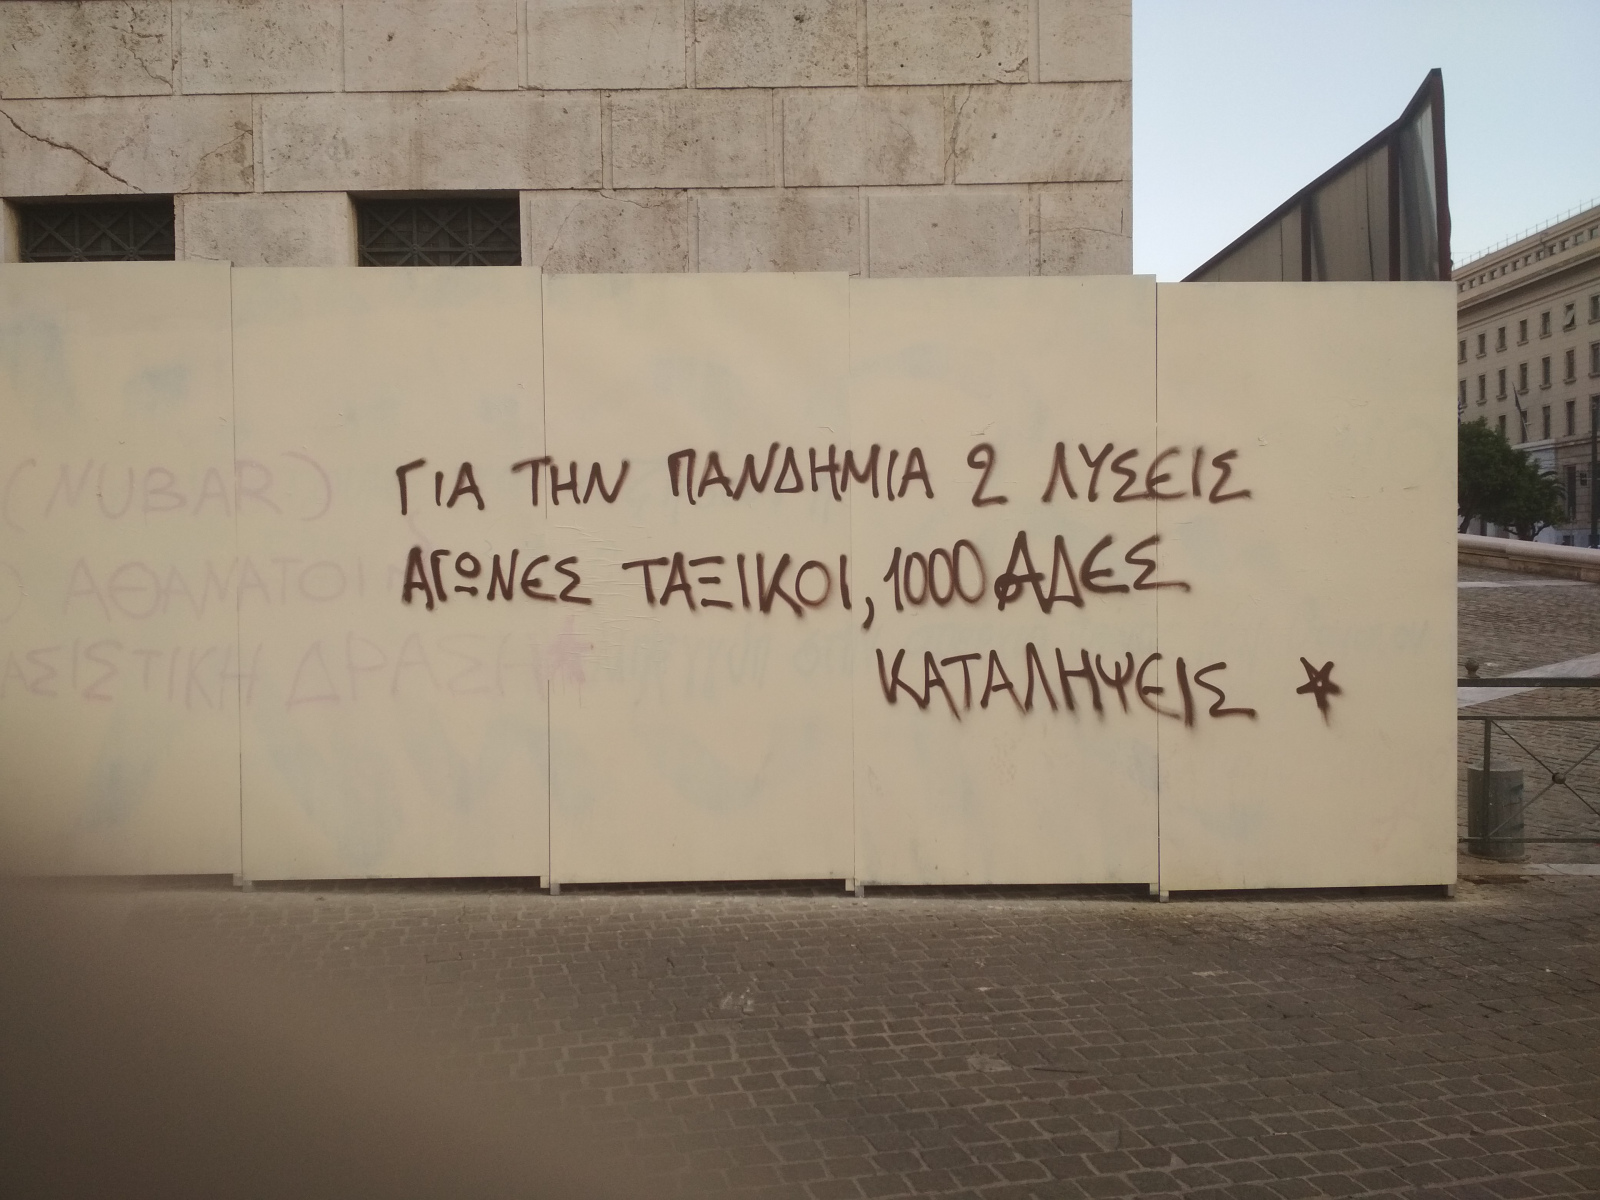 ΓΙΑ ΤΗΝ ΠΑΝΔΗΜΙΑ 2 ΛΥΣΕΙΣ
ΑΓΩΝΕΣ ΤΑΞΙΚΟΙ, 1000ΑΔΕΣ
ΚΑΤΑΛΗΨΕΙΣ
(NUBAR)
ΑΘΑΝΑΤΟΙ
ΑΣΙΣΤΙΚΗ ΔΡΑΣΗ